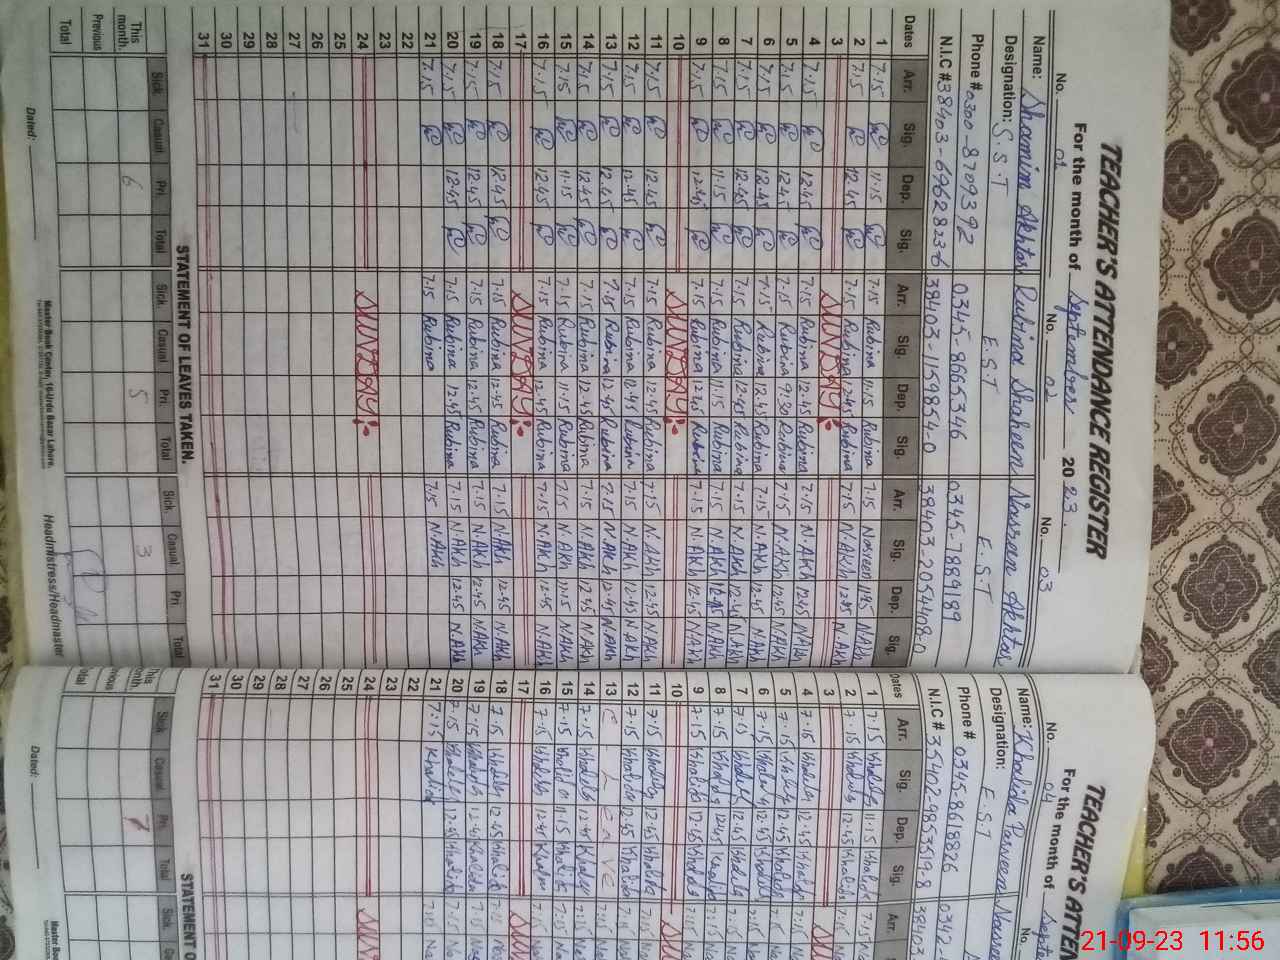 TEACHER'S ATTENDANCE REGISTER
For the month of September 2023
No. 01 No. 02 No. 03
Name: Shamim Akhtar Rubina Shaheen Nasreen Akhtar
Designation: S.S.T E.S.T E.S.T
Phone # 0300-8709392 0345-8665346 0345-7889189
N.I.C # 38403-6962823-6 38403-1159854-0 38403-2052408-0
Dates Arr. Sig. Dep. Sig. Arr. Sig. Dep. Sig. Arr. Sig. Dep. Sig.
1 7.15 11.15 7.15 Rubina 11.15 Rubina 7.15 Nasreen 11.15 N.AKh
2 7.15 12.45 7.15 Rubina 12.45 Rubina 7.15 N.AKh 12.45 N.AKh
3 SUNDAY
4 7.15 12.45 7.15 Rubina 12.45 Rubina 7.15 N.AKh 12.45 N.AKh
5 7.15 12.45 7.15 Rubina 9:30 Rubina 7.15 N.AKh 12.45 N.AKh
6 7.15 12.45 7.15 Rubina 12.45 Rubina 7.15 N.AKh 12.45 N.AKh
7 7.15 12.45 7.15 Rubina 12.45 Rubina 7.15 N.AKh 12.45 N.AKh
8 7.15 11.15 7.15 Rubina 11.15 Rubina 7.15 N.AKh N.AKh
9 7.15 12.45 7.15 Rubina 12.45 Rubina 7.15 N.AKh 12.45 N.AKh
10 SUNDAY
11 7.15 12.45 7.15 Rubina 12.45 Rubina 7.15 N.AKh 12.45 N.AKh
12 7.15 12.45 7.15 Rubina 12.45 Rubina 7.15 N.AKh 12.45 N.AKh
13 7.15 12.45 7.15 Rubina 12.45 Rubina 7.15 N.AKh 12.45 N.AKh
14 7.15 12.45 7.15 Rubina 12.45 Rubina 7.15 N.AKh 12.45 N.AKh
15 7.15 11.15 7.15 Rubina 11.15 Rubina 7.15 N.AKh 11.15 N.AKh
16 7.15 12.45 7.15 Rubina 12.45 Rubina 7.15 N.AKh 12.45 N.AKh
17 SUNDAY
18 7.15 12.45 7.15 Rubina 12.45 Rubina 7.15 N.AKh 12.45 N.AKh
19 7.15 12.45 7.15 Rubina 12.45 Rubina 7.15 N.AKh 12.45 N.AKh
20 7.15 12.45 7.15 Rubina 12.45 Rubina 7.15 N.AKh 12.45 N.AKh
21 7.15 7.15 Rubina 7.15 N.AKh
22
23
24 SUNDAY
25
26
27
28
29
30
31
STATEMENT OF LEAVES TAKEN.
Sick. Casual Pri. Total Sick. Casual Pri. Total Sick. Casual Pri Total
This month. 6 5 3
Previous
Total
Master Book Center, 16-Urdu Bazar Lahore.
Dated: Headmistress/Headmaster
TEACHER'S ATTEN
For the month of Septe
No. 04 No.
Name: Khalida Parveen
Designation: E.S.T
Phone # 0345-8618826 0342-
N.I.C # 35402-9853519-8 38403
Dates Arr. Sig. Dep. Sig. Arr.
1 7.15 Khalida 11.15 Khalida 7.15
2 7.15 Khalida 12.45 Khalida 7.15
3
4 7.15 Khalida 12.45 Khalida 7.15
5 7.15 Khalida 12.45 Khalida 7.15
6 7.15 Khalida 12.45 Khalida 7.15
7 7.15 Khalida 12.45 Khalida 7.15
8 7.15 Khalida 12.45 Khalida 7.15
9 7.15 Khalida 12.45 Khalida 7.15
10
11 7.15 Khalida 12.45 Khalida 7.15
12 7.15 Khalida 12.45 Khalida 7.15
13 C Leave
14 7.15 Khalida 12.45 Khalida 7.15
15 7.15 Khalida 11.15 Khalida
16 7.15 Khalida 12.45 Khalida 7.15
17
18 7.15 Khalida 12.45 Khalida 7.15
19 7.15 Khalida 12.45 Khalida 7.15
20 7.15 Khalida 12.45 Khalida 7.15
21 7.15 Khalida
22
23
24
25
26
27
28
29
30
31
STATEMENT O
Sick Casual Pri. Total Sick.
This month. 7
Previous
Total
Master Boo
Dated:
21-09-23 11:56